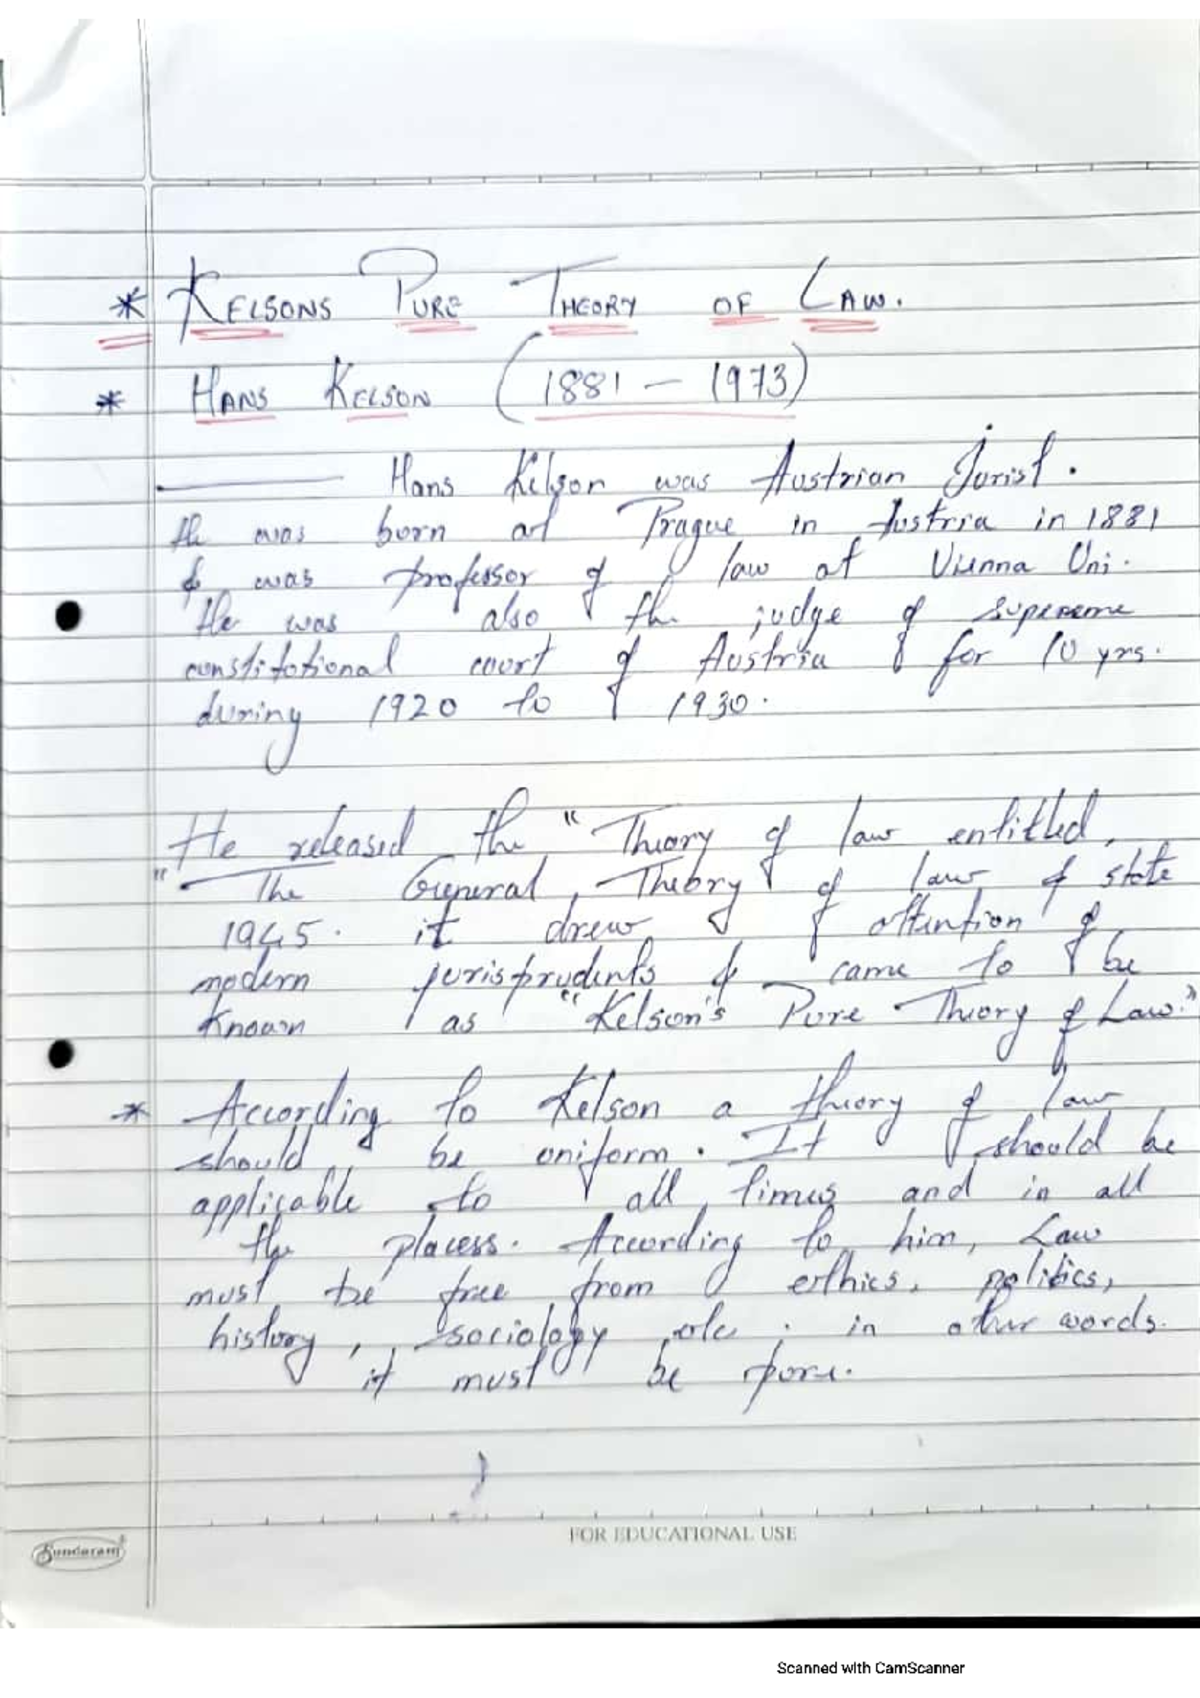 * KELSONS PURE THEORY OF LAW.
* HANS KELSON (1881 – 1973)
Hans Kelson was Austrian Jurist.
He was born at Prague in Austria in 1881
& was professor of law at Vienna Uni.
He was also the judge of supereme
constitotional court of Austria for 10 yrs.
during 1920 to 1930.
He released the "Theory of law entitled,
"The General Theory of law & state
1945. it drew attention of
modern jurisprudents & came to be
known as "Kelson's Pure Theory of Law."
* According to Kelson a theory of law
should be uniform. It should be
applicable to all times and in all
the placess. According to him, Law
must be free from ethics, politics,
history, sociology etc. in other words.
it must be pure.
FOR EDUCATIONAL USE
Sundaram
Scanned with CamScanner